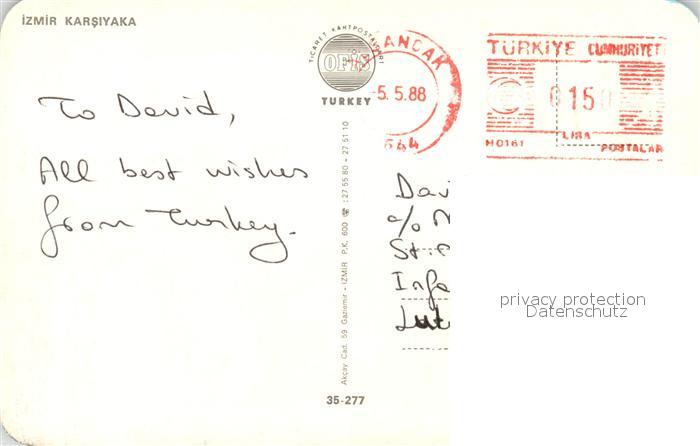 İZMİR KARŞIYAKA
TİCARET KARTPOSTALLARI
OFİS
TURKEY
ANCAK
5.5.88
TÜRKİYE CUMHURİYETİ
0150
LİRA
H0161 POSTALAR
To David,
All best wishes
from Turkey.
Davi
c/o
St.
Info
Lut
privacy protection
Datenschutz
Akçay Cad. 59 Gaziemir - İZMİR P.K. 600 ☎ : 27 55 80 - 27 51 10
35-277